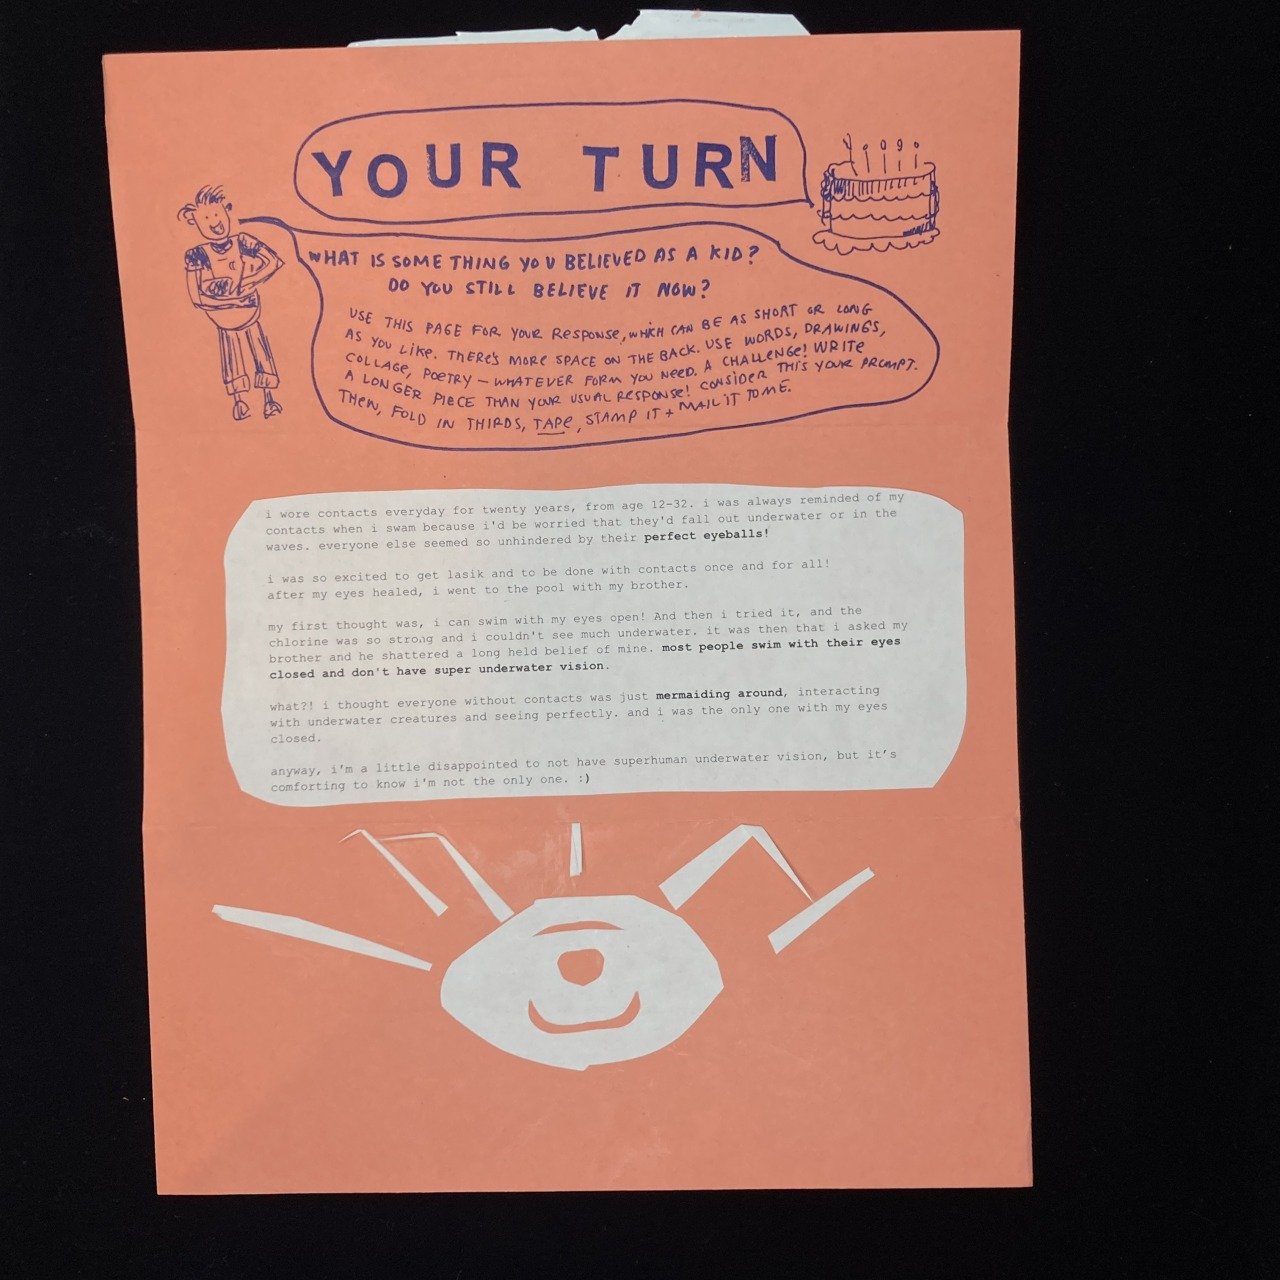 YOUR TURN
WHAT IS SOMETHING YOU BELIEVED AS A KID?
DO YOU STILL BELIEVE IT NOW?
USE THIS PAGE FOR YOUR RESPONSE, WHICH CAN BE AS SHORT OR LONG
AS YOU LIKE. THERE'S MORE SPACE ON THE BACK. USE WORDS, DRAWINGS,
COLLAGE, POETRY — WHATEVER FORM YOU NEED. A CHALLENGE! WRITE
A LONGER PIECE THAN YOUR USUAL RESPONSE! CONSIDER THIS YOUR PROMPT.
THEN, FOLD IN THIRDS, TAPE, STAMP IT + MAIL IT TO ME.
i wore contacts everyday for twenty years, from age 12-32. i was always reminded of my
contacts when i swam because i'd be worried that they'd fall out underwater or in the
waves. everyone else seemed so unhindered by their perfect eyeballs!
i was so excited to get lasik and to be done with contacts once and for all!
after my eyes healed, i went to the pool with my brother.
my first thought was, i can swim with my eyes open! And then i tried it, and the
chlorine was so strong and i couldn't see much underwater. it was then that i asked my
brother and he shattered a long held belief of mine. most people swim with their eyes
closed and don't have super underwater vision.
what?! i thought everyone without contacts was just mermaiding around, interacting
with underwater creatures and seeing perfectly. and i was the only one with my eyes
closed.
anyway, i'm a little disappointed to not have superhuman underwater vision, but it's
comforting to know i'm not the only one. :)